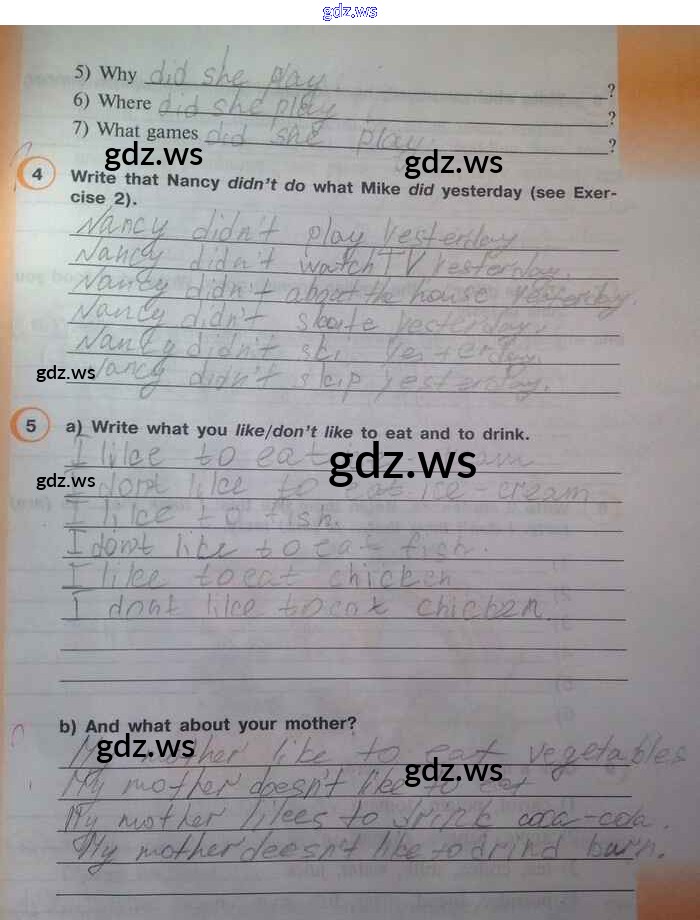 gdz.ws
5) Why did she play ?
6) Where did she play ?
7) What games did she play. ?
gdz.ws
gdz.ws
4 Write that Nancy didn't do what Mike did yesterday (see Exer-
cise 2).
Nancy didn't play yesterday
Nancy didn't watch TV yesterday.
Nancy didn't about the house yesterday.
Nancy didn't skate yesterday.
Nancy didn't ski yesterday.
gdz.ws
Nancy didn't skip yesterday.
5 a) Write what you like/don't like to eat and to drink.
I like to eat
gdz.ws
gdz.ws
I dont like to eat ice-cream
I like to fish.
I dont like to eat fish.
I like to eat chicken
I dont like to eat chicken.
b) And what about your mother?
gdz.ws
My mother like to eat vegetables
gdz.ws
My mother doesn't like to eat
My mother likees to drink coca-cola.
My mother deesn't like to drind